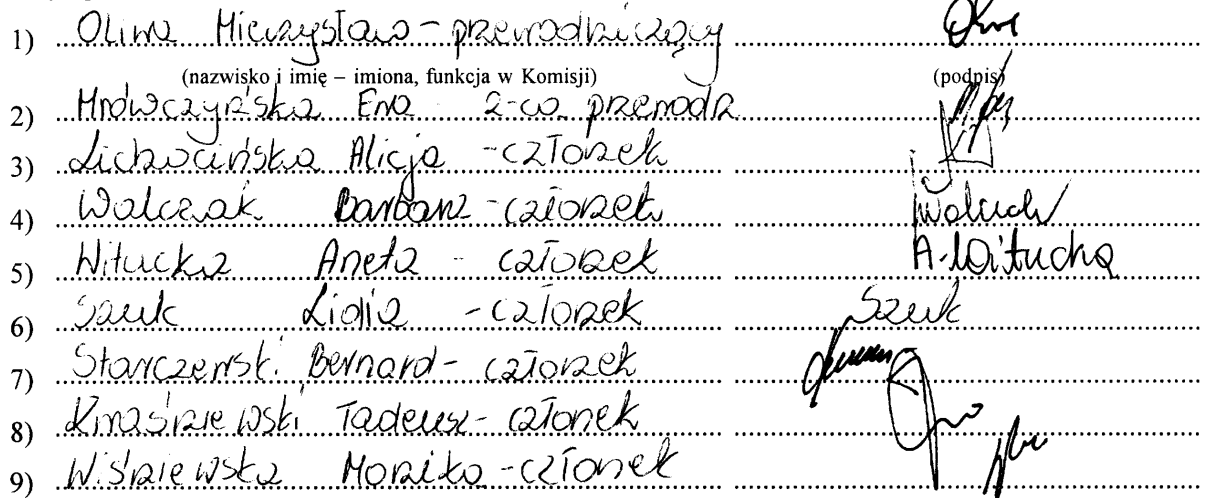 1) Oliwa Mieczysław - przewodniczący
(nazwisko i imię – imiona, funkcja w Komisji) (podpis)
2) Mrówczyńska Ewa z-ca przewodn
3) Lichocińska Alicja - członek
4) Walczak Barbara - członek Walczak
5) Witucka Aneta - członek A. Witucka
6) Szuk Lidia - członek Szuk
7) Starczewski Bernard - członek
8) Kwaśniewski Tadeusz - członek
9) Wiśniewska Monika - członek